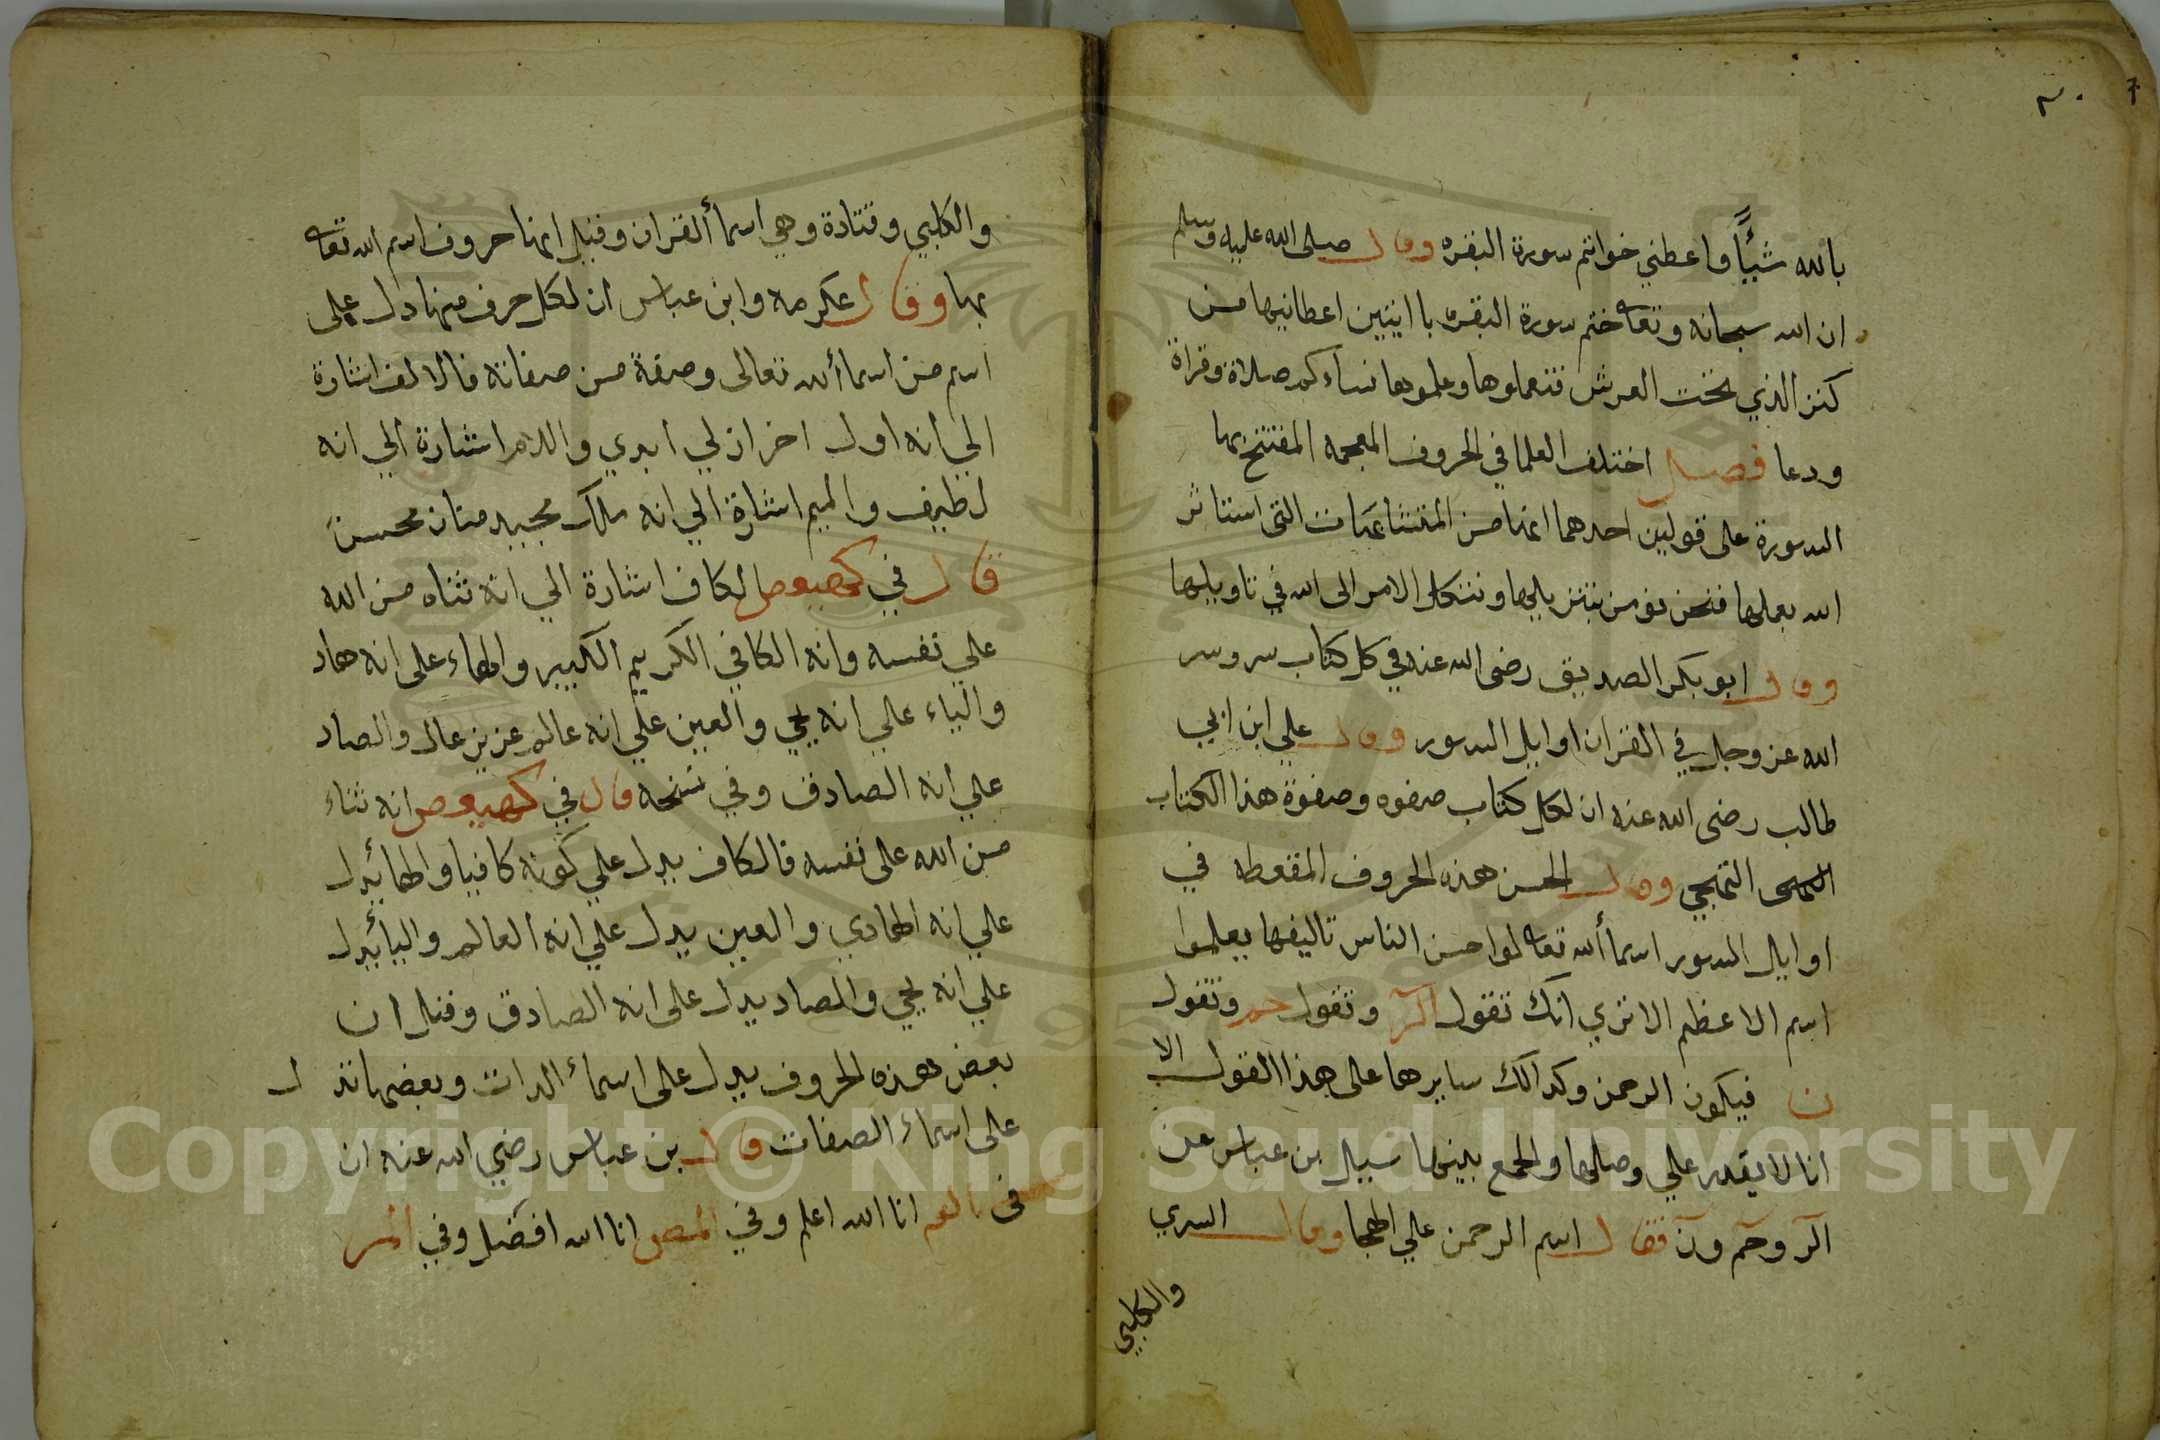 بالله شيئًا واعطني خواتم سورة البقره وقال صلى الله عليه وسلم
ان الله سبحانه وتعا ختم سورة البقره باايتين اعطانيها من
كنز الذي تحت العرش فتعملوها وعلموها نساءكم صلاة وقراة
ودعا فصل اختلف العلما في الحروف المعجمه المفتتح بها
السورة على قولين احدهما انها من المتشابهات التى استاثر
الله بعلمها فنحن نومن بتنزيلها ونتكل الامر الى الله في تاويلها
وقال ابو بكر الصديق رضى الله عنه في كل كتاب سر وسر
الله عز وجل في القران اوايل السور وقال علي ابن ابي
طالب رضى الله عنه ان لكل كتاب صفوه وصفوة هذا الكتاب
التهجي وقال الحسن هذه الحروف المقعطه في
اوايل السور اسما الله تعا لواحسن الناس تاليفها يعلموا
اسم الاعظم الا تري انك تقول الر وتقول حم وتقول
ن فيكون الرحمن وكدالك سايرها على هذا القول الا
انا لا يقدر علي وصلها والجمع بينها سيل بن عباس عن
الر وحم ون فقال اسم الرحمن علي الهجا وقال السري
والكلبي
والكلبي وقتادة وهي اسما القران وقيل انها حروف اسم الله تعا
بها وقال عكرمه وابن عباس ان لكل حرف منها دل على
اسم من اسما الله تعالى وصفة من صفاته فالالف اشارة
الي انه اول اخر ازلي ابدي واللام اشارة الي انه
لطيف والميم اشارة الي انه ملك مجيد منان محسن
قال في كهيعص الكاف اشارة الي انه ثناه من الله
علي نفسه وانه الكافي الكريم الكبير والهاء على انه هاد
والياء علي انه يحي والعين علي انه عالم عزيز عال والصاد
علي انه الصادق وفي نسخه قال في كهيعص انه ثناء
من الله على نفسه فالكاف يدل علي كونه كافيا والها يدل
علي انه الهادي والعين يدل علي انه العالم واليا يدل
علي انه يحي والصاد يدل على انه الصادق وقيل ان
بعض هذه الحروف يدل على اسماء الدات وبعضها تد ل
على اسماء الصفات قال بن عباس رضي الله عنه ان
فى الم انا الله اعلم وفي المص انا الله افضل وفي المر
Copyright © King Saud University